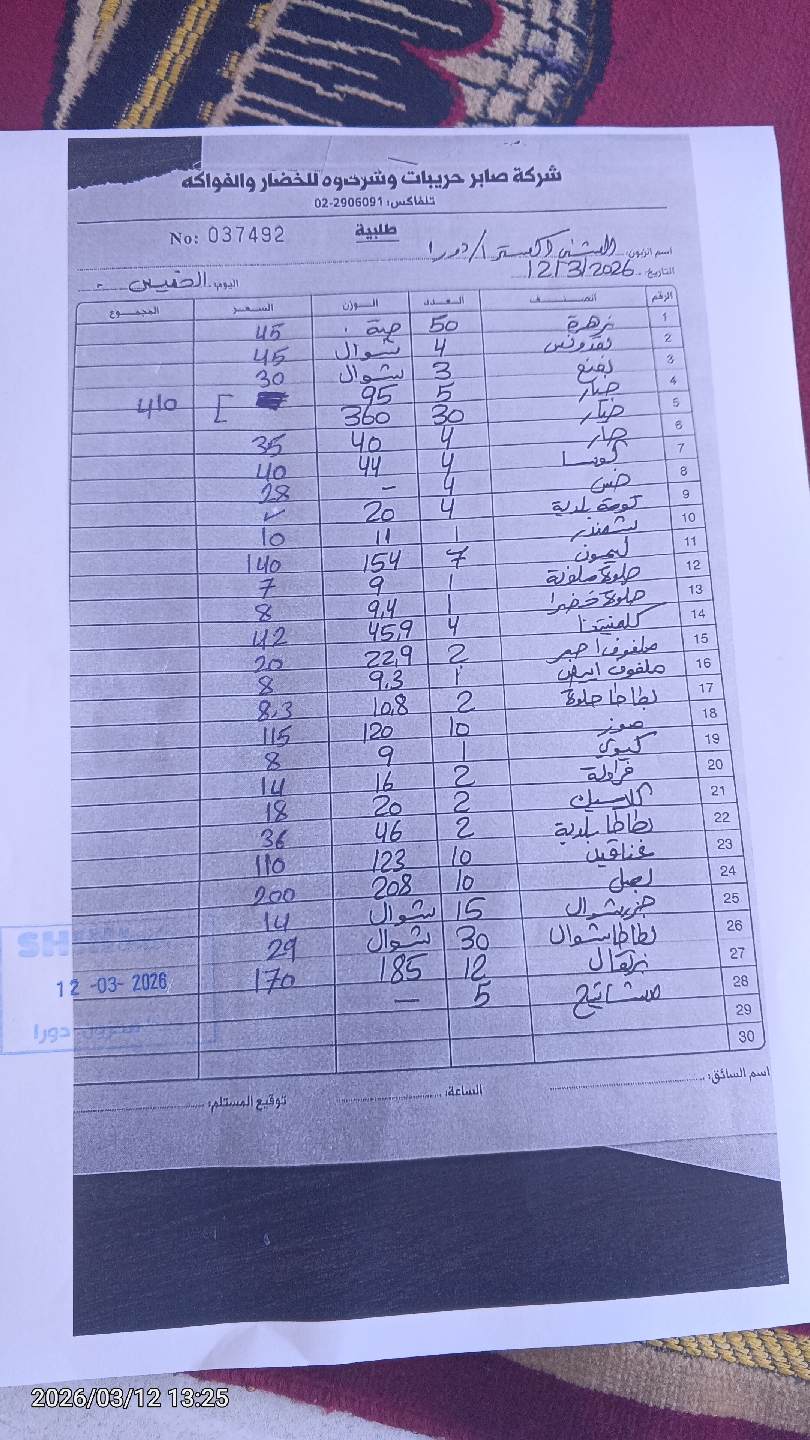 شركة صابر حريبات وشركوه للخضار والفواكه
تلفاكس: 02-2906091
No: 037492
طلبية
اسم الزبون: الشني اكسترا / دورا
اليوم: الخميس
التاريخ: 12/3/2026
الرقم الصنف العدد الوزن السعر المجموع
1 زهرة 50 حبة 45
2 بقدونس 4 شوال 45
3 نعنع 3 شوال 30
4 خيار 5 95
5 خيار 30 360 [ 410
6 4 40 35
7 كوسا 4 44 40
8 خس 4 - 28
9 ثومة بلدية 4 20 ✓
10 شمندر 1 11 10
11 ليمون 7 154 140
12 حلوة ملونة 1 9 7
13 حلوة خضرا 1 9,4 8
14 كلمنتينا 4 45,9 42
15 ملفوف احمر 2 22,9 20
16 ملفوف ابيض 1 9.3 8
17 بطاطا حلوة 2 10,8 8,3
18 موز 10 120 115
19 كيوي 1 9 8
20 فراولة 2 16 14
21 2 20 18
22 بطاطا بلدية 2 46 36
23 10 123 110
24 بصل 10 208 200
25 جزر شوال 15 شوال 14
26 بطاطا شوال 30 شوال 29
27 برتقال 12 185 170
28 مشاتيح 5 —
29
30
12 -03- 2026
دورا
اسم السائق:
الساعة:
توقيع المستلم:
2026/03/12 13:25